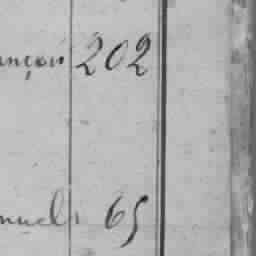 ançois 202
nuel 65